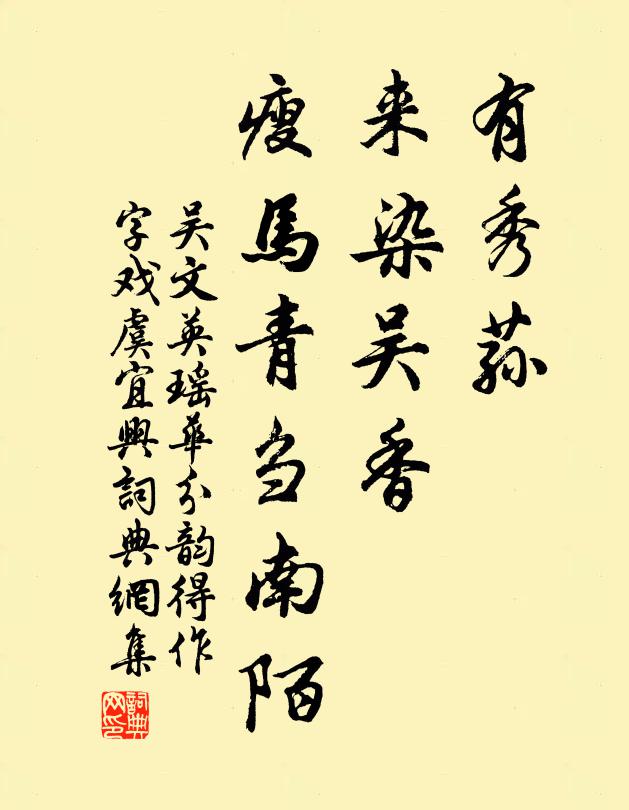 有秀荪
来染吴香
瘦馬青刍南陌
吴文英瑶華分韵得作
字戏虞宜興詞典網集
詞典網印